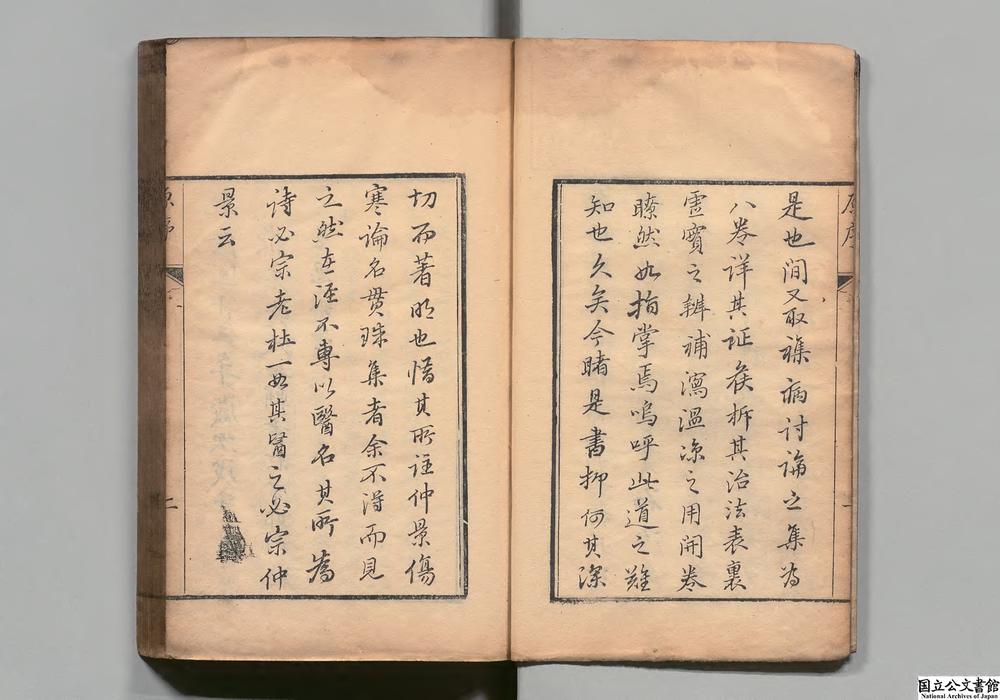 是也间又取襍病讨論之集为
八卷详其证矦柝其治法表裏
虚實之辨補瀉温凉之用開卷
瞭然如指掌焉嗚呼此道之難
知也久矣今睹是書抑何其深
切而著明也惜其所註仲景傷
寒論名貫珠集者余不得而見
之然在涇不專以醫名其所為
诗必宗老杜一如其醫之必宗仲
景云
原序
二
国立公文書館
National Archives of Japan